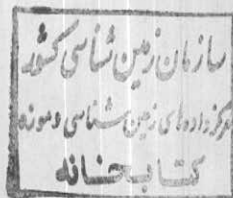 سازمان زمین شناسی کشور
مرکز داده های زمین شناسی و موزه
کتابخانه